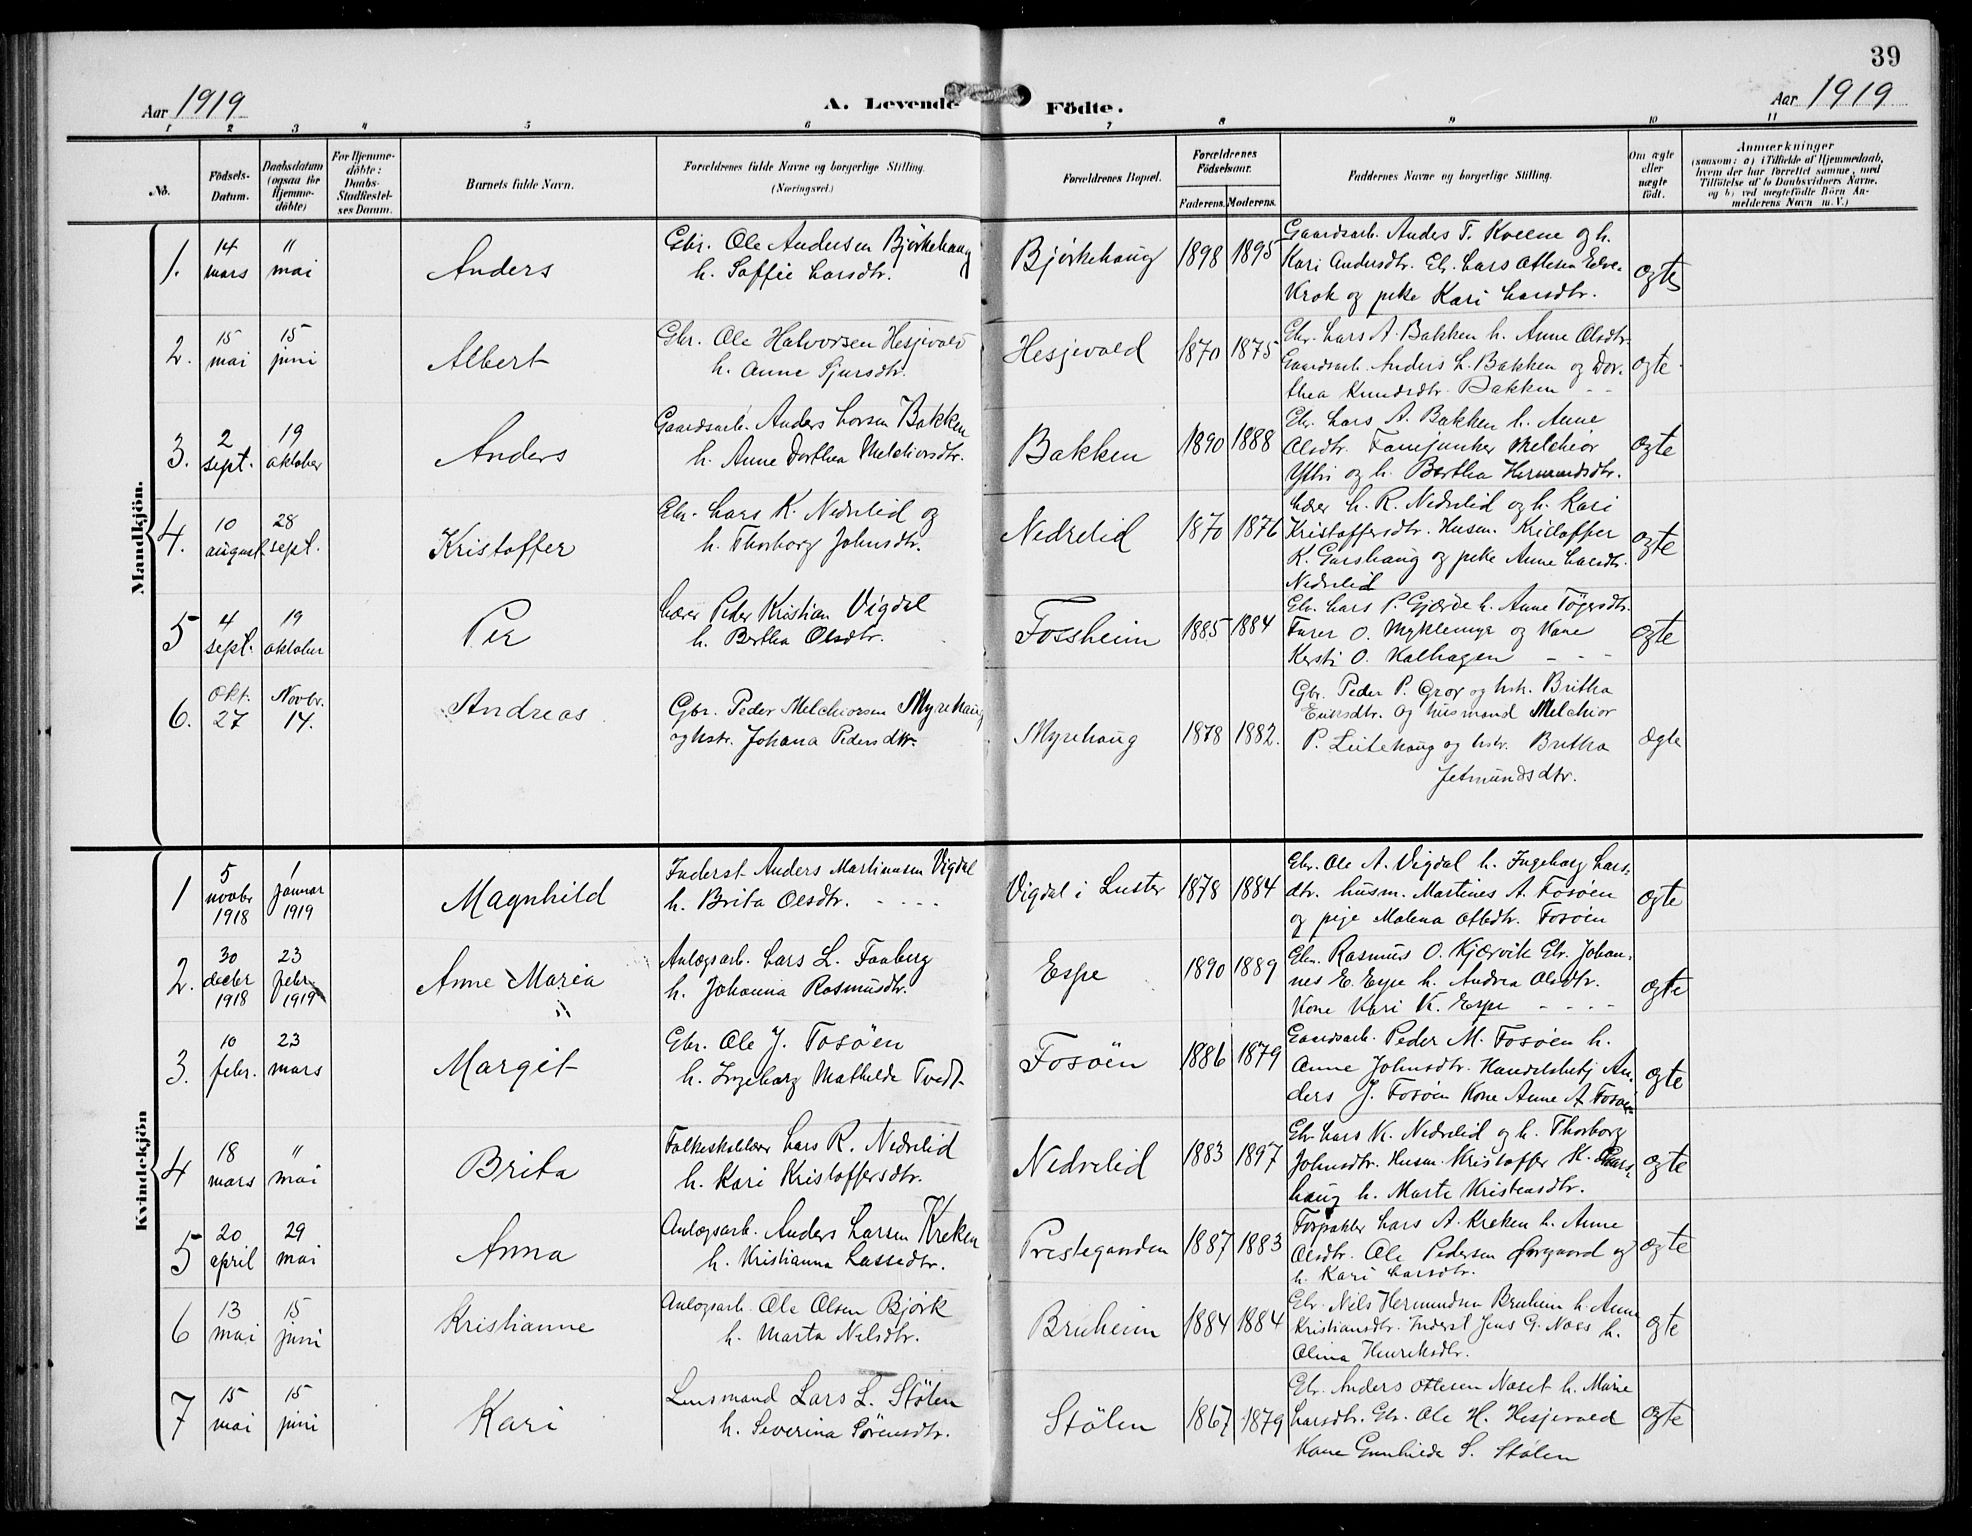 39
Aar 1919
A. Levende Födte.
Aar 1919
1 2 3 4 5 6 7 8 9 10 11
No.
Födsels-Datum.
Daabsdatum (ogsaa for Hjemme-döbte)
For Hjemme-döbte: Daabs-Stadfæstel-ses Datum.
Barnets fulde Navn.
Forældrenes fulde Navne og borgerlige Stilling. (Næringsvei.)
Forældrenes Bopæl.
Forældrenes Födselsaar.
Faderens. Moderens.
Faddernes Navne og borgerlige Stilling.
Om ægte eller uægte födt.
Anmærkninger
(saasom: a) i Tilfælde af Hjemmedaab,
hvem der har forrettet samme, med
Tilföielse af to Daabsvidners Navne,
og b) ved uægtefödte Börn An-
melderens Navn m. V.)
Mandkjön.
1. 14 mars " mai Anders
Gbr. Ole Andersen Bjørkehaug
h. Soffie Larsdtr.
Bjørkehaug 1898 1895
Gaardsarb. Anders T. Kveene og h.
Kari Andersdtr. Gbr. Lars Ottesen Edve-
Krok og pike Kari Larsdtr.
ogte
2. 15 mai 15 juni Albert
Gbr. Ole Halvorsen Hesjevold
h. Anne Sjursdtr.
Hesjevold 1870 1875
Gbr. Lars A. Bakken h. Anne Olsdtr.
Gaardsarb. Anders L. Bakken og Dor-
thea Knudsdtr. Bakken - -
ogte
3. 2 sept. 19 oktober Anders
Gaardsarb. Anders Larsen Bakken
h. Anne Dorthea Melchiorsdtr.
Bakken 1890 1888
Gbr. Lars A. Bakken h. Anne
Olsdtr. Fanejunker Melchior
Yttri og h. Bertha Hermundsdtr.
ogte
4. 10 august 28 sept. Kristoffer
Gbr. Lars K. Nedrelid og
h. Thorborg Johnsdtr.
Nedrelid 1870 1876
Lærer L. R. Nedrelid og h. Kari
Kristoffersdtr. Husm. Kristoffer
K. Garshaug og pike Anne Larsdtr.
Nedrelid
ogte
5 4 sept. 19 oktober Per
Lærer Peder Kristian Vigdal
h. Bertha Olsdtr.
Fossheim 1885 1884
Gbr. Lars P. Gjærde h. Anne Tøgersdtr.
Furer O. Myklemyr og Kone
Kersti O. Kalhagen - - -
ogte
6. Okt. 27 Novbr. 14. Andreas
Gbr. Peder Melchiorsen Myrehaug
og hstr. Johana Pedersdtr.
Myrehaug 1878 1882.
Gbr. Peder P. Grov og hstr. Britha
Eriksdtr. og husmand Melchior
P. Leitehaug og hstr. Britha
Jetmundsdtr.
Ægte
Kvindekjön
1 5 novbr 1918 1 januar 1919 Magnhild
Inderst Anders Martinusen Vigdal
h. Brita Olsdtr. - - - -
Vigdal i Luster 1878 1884
Gbr. Ole A. Vigdal h. Ingeborg Lars-
dtr. husm. Martines A. Fosøen
og pige Malena Olsdtr. Fosøen
ogte
2. 30 decbr 1918 23 febr. 1919 Anne Maria
Anlægsarb. Lars L. Faaberg
h. Johanna Rasmusdtr.
Espe 1890 1889
Gbr. Rasmus O. Kjærvik Gbr. Johan-
nes E. Espe h. Andrea Olsdtr.
Kone Kari K. Espe - - - -
ogte
3. 10 febr. 23 mars Margit
Gbr. Ole J. Fosøen
h. Ingeborg Mathilde Tvedt
Fosøen 1886 1879
Gaardsarb. Peder M. Fosøen h.
Anne Johnsdtr. Handelsbetj An-
ders J. Fosøen Kone Anne A Fosøen
ogte
4 18 mars " mai Brita
Folkeskolelærer Lars R. Nedrelid
h. Kari Kristoffersdtr.
Nedrelid 1883 1897
Gbr Lars K. Nedrelid og h. Thorborg
Johnsdtr. Husm. Kristoffer K. Gars-
haug h. Marte Kristensdtr.
ogte
5 20 april 29 mai Anna
Anlægsarb. Anders Larsen Kreken
h. Kristianna Lassedtr.
Prestegaarden 1887 1883
Forpakter Lars A. Kreken h. Anne
Olsdtr. Ole Pedersen Øvrgaard og
h. Kari Larsdtr.
ogte
6 13 mai 15 juni Kristianne
Anlægsarb. Ole Olsen Bjørk
h. Marta Nilsdtr.
Bruheim 1884 1884
Gbr. Nils Hermundsen Bruheim h. Anne
Kristiansdtr. Inderst Jens G. Naes h.
Olina Henriksdtr.
ogte
7 15 mai 15 juni Kari
Lensmand Lars L. Stölen
h. Severina Sörensdtr.
Stölen 1867 1879
Gbr. Anders Ottesen Næset h. Marie
Larsdtr. Gbr. Ole H. Hesjevold
Kone Gunhilda S. Stölen
ogte